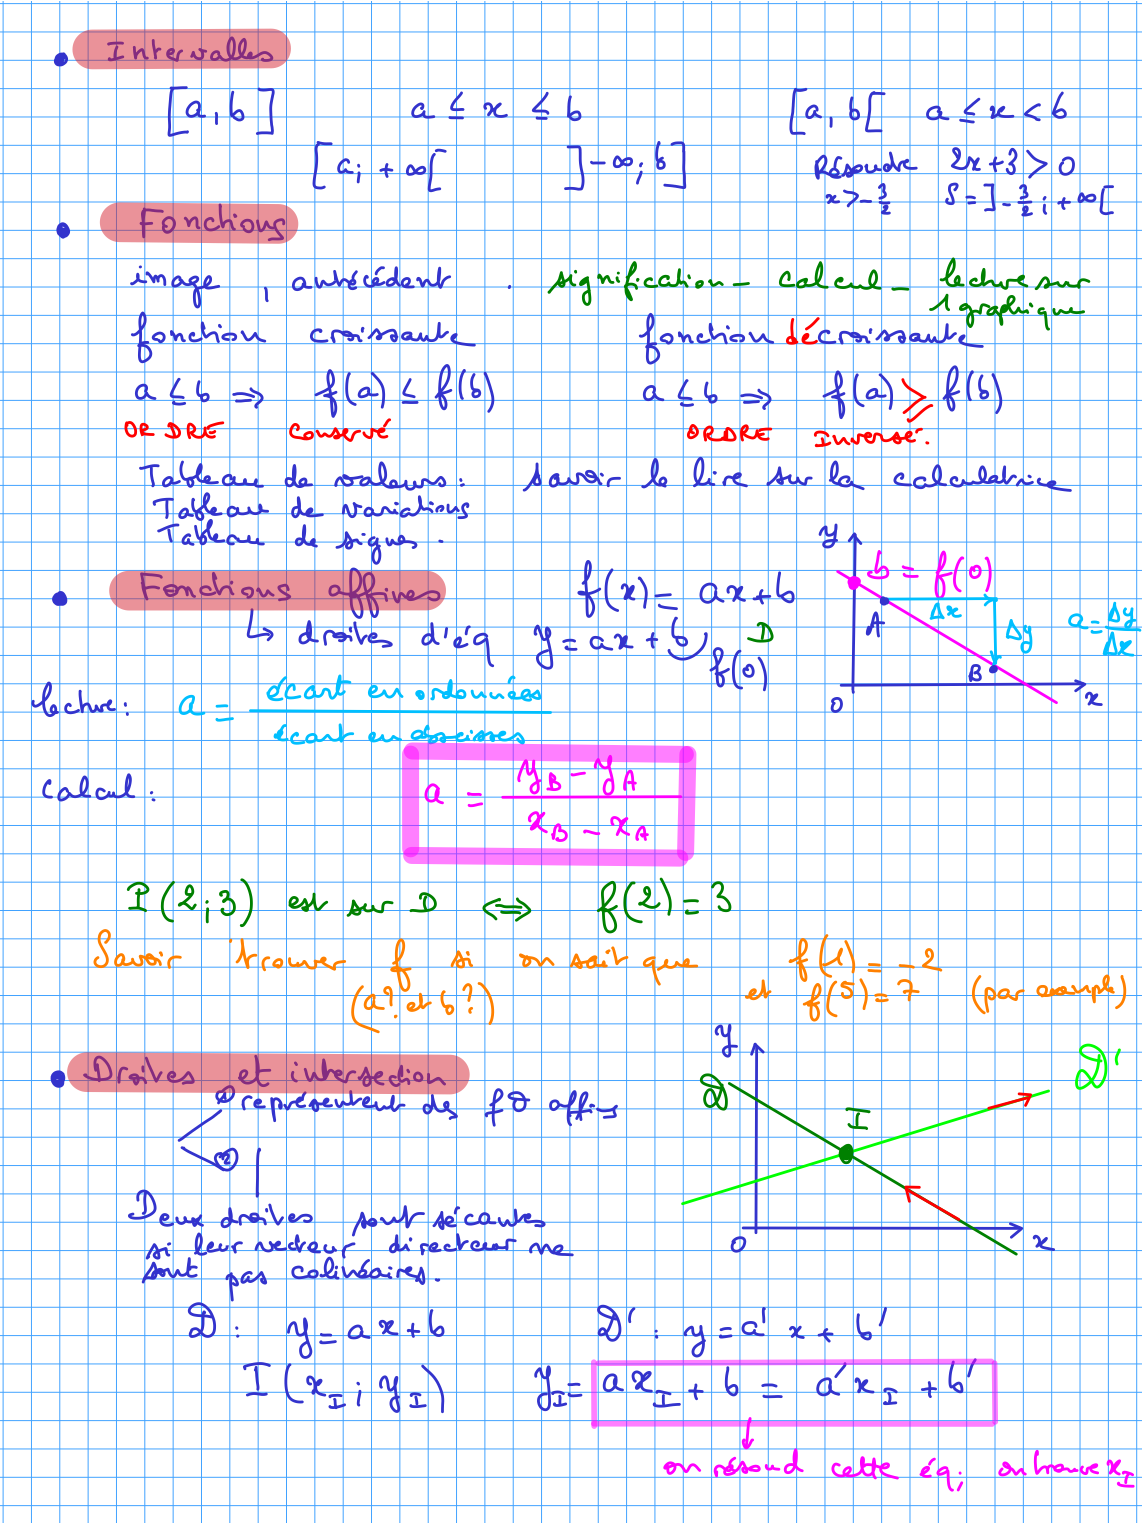 Intervalles
[a, b]   a ≤ x ≤ b   [a, b[   a ≤ x < b
[a; +∞[   ]-∞; b]   Résoudre 2x+3 > 0
x > -3/2   S = ]-3/2; +∞[
Fonctions
image, antécédent . signification - calcul - lecture sur
1 graphique
fonction croissante   fonction décroissante
a ≤ b ⇒ f(a) ≤ f(b)   a ≤ b ⇒ f(a) ≥ f(b)
ORDRE conservé   ORDRE Inversé.
Tableau de valeurs : savoir le lire sur la calculatrice
Tableau de variations
Tableau de signes.
y
b = f(0)
Fonctions affines   f(x) = ax+b
A   Δx   Δy   a = Δy/Δx
↳ droites d'éq y = ax + b   D
f(0)
B
0   x
lecture : a = écart en ordonnées / écart en abscisses
calcul : a = (yB - yA) / (xB - xA)
P(2;3) est sur D ⇔ f(2) = 3
Savoir trouver f si on sait que f(1) = -2
(a? et b?)   et f(5) = 7 (par exemple)
y   D'
Droites et intersection
D   I
① représentent des fØ affines
②
0   x
Deux droites sont sécantes
si leur vecteur directeur ne
sont pas colinéaires.
D : y = ax+b   D' : y = a'x + b'
I(xI ; yI)   yI = axI + b = a'xI + b'
↓
on résoud cette éq, on trouve xI